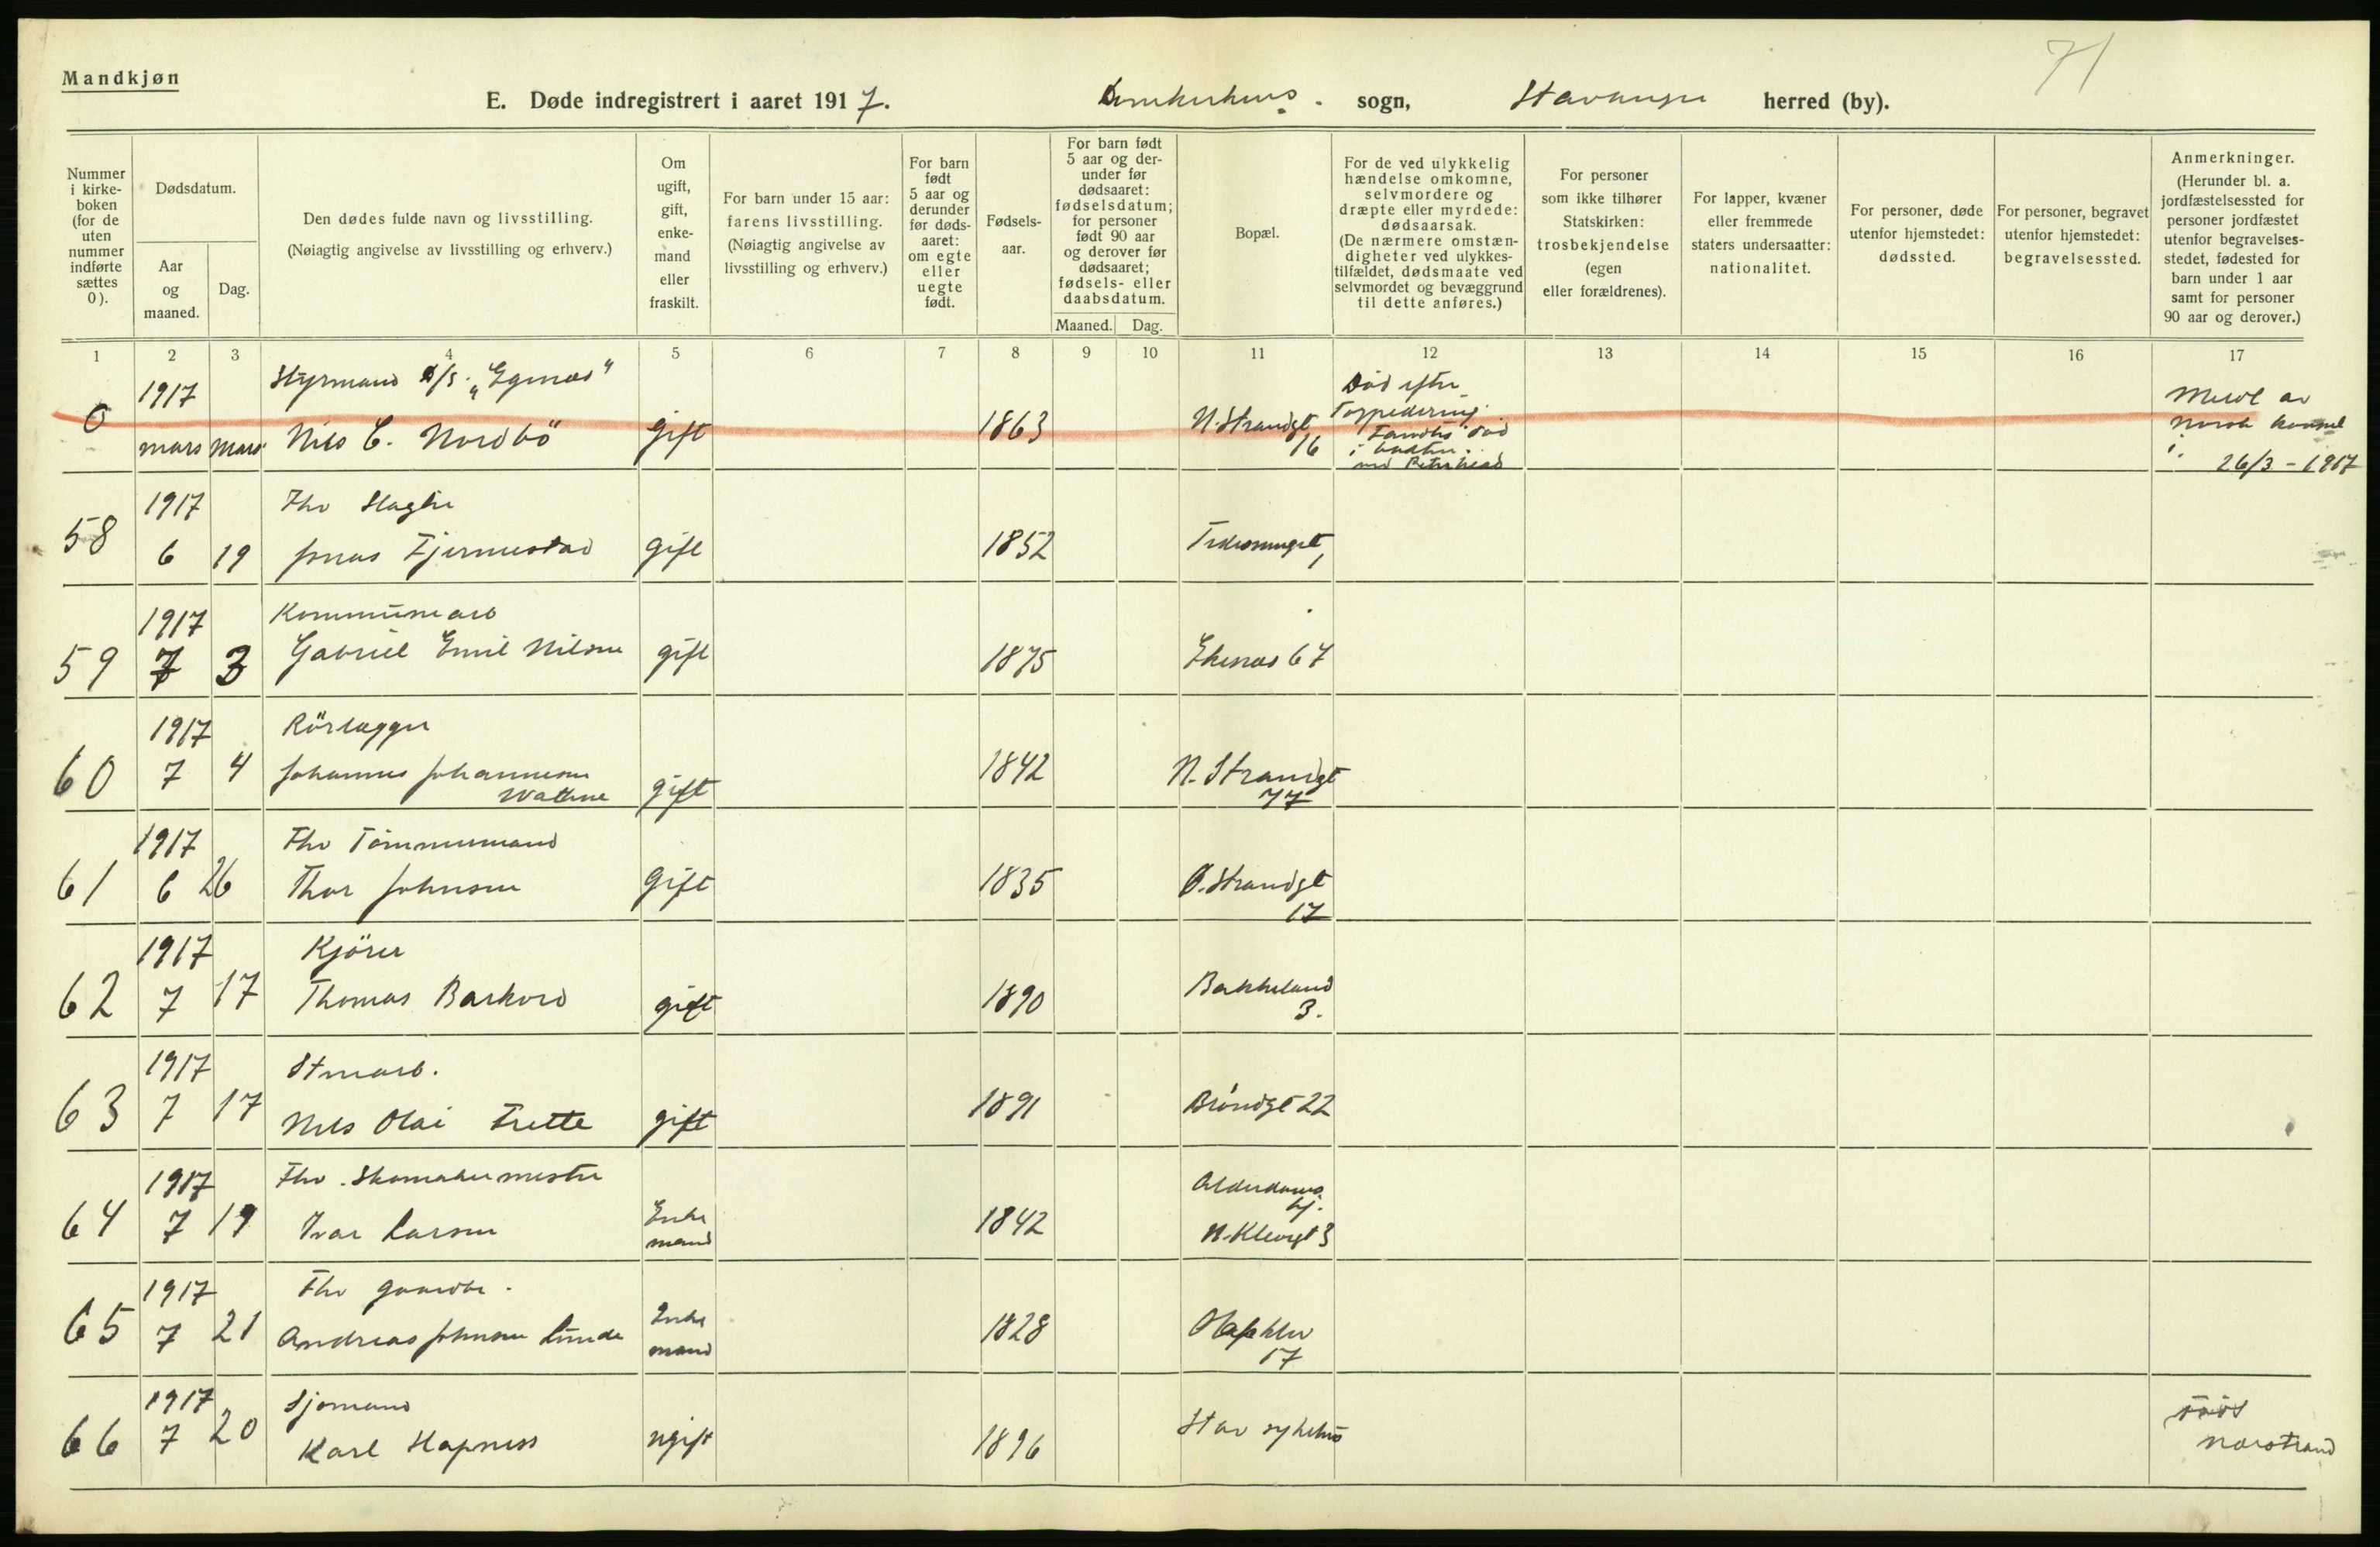 71
Mandkjøn
E. Døde indregistrert i aaret 1917. sogn, Stavanger herred (by).
Nummer i kirke-boken (for de uten nummer indførte sættes 0).
Dødsdatum.
Aar og maaned.
Dag.
Den dødes fulde navn og livsstilling.
(Nøiagtig angivelse av livsstilling og erhverv.)
Om ugift, gift, enke-mand eller fraskilt.
For barn under 15 aar: farens livsstilling.
(Nøiagtig angivelse av livsstilling og erhverv.)
For barn født 5 aar og derunder før døds-aaret: om egte eller uegte født.
Fødsels-aar.
For barn født 5 aar og der-under før dødsaaret: fødselsdatum; for personer født 90 aar og derover før dødsaaret; fødsels- eller daabsdatum.
Maaned. Dag.
Bopæl.
For de ved ulykkelig hændelse omkomne, selvmordere og dræpte eller myrdede: dødsaarsak.
(De nærmere omstæn-digheter ved ulykkes-tilfældet, dødsmaate ved selvmordet og bevæggrund til dette anføres.)
For personer som ikke tilhører Statskirken: trosbekjendelse (egen eller forældrenes).
For lapper, kvæner eller fremmede staters undersaatter: nationalitet.
For personer, døde utenfor hjemstedet: dødssted.
For personer, begravet utenfor hjemstedet: begravelsessted.
Anmerkninger.
(Herunder bl. a. jordfæstelsessted for personer jordfæstet utenfor begravelses-stedet, fødested for barn under 1 aar samt for personer 90 aar og derover.)
1 2 3 4 5 6 7 8 9 10 11 12 13 14 15 16 17
1917 Styrmand D/S. „Egenæs" Död efter Meld av
0 mars mars Nils C. Nordbö gift 1863 N. Strandgt 16 Torpedering. Fandtes död i baaten ved Peterhead norsk konsul i. 26/3 - 1917
1917 Fhv Slagter
58 6 19 Jonas Fjermestad gift 1852
1917 Kommunearb
59 7 3 Gabriel Emil Nilsen gift 1875 Ekenæs 67
1917 Rörlægger
60 7 4 Johannes Johannesen Wathne gift 1842 N. Strandgt 77
1917 Fhv Tömmermand
61 6 26 Thor Johnsen gift 1835 Ö. Strandgt 17
1917 Kjörer
62 7 17 Thomas Barkved gift 1890 Bakkeland 3.
1917 Stenarb.
63 7 17 Nils Olai Trette gift 1891 Bröndgt 22
1917 Fhv. Skomakermester
64 7 19 Ivar Larsen Enkemand 1842 Alderdomshj. N. Klevgt 3
1917 Fhv gaardbr.
65 7 21 Andreas Johnsen Lunde Enkemand 1828 Olafsklev 17
1917 Sjømand
66 7 20 Karl Hapness ugift 1896 Stav sykehus Narstrand